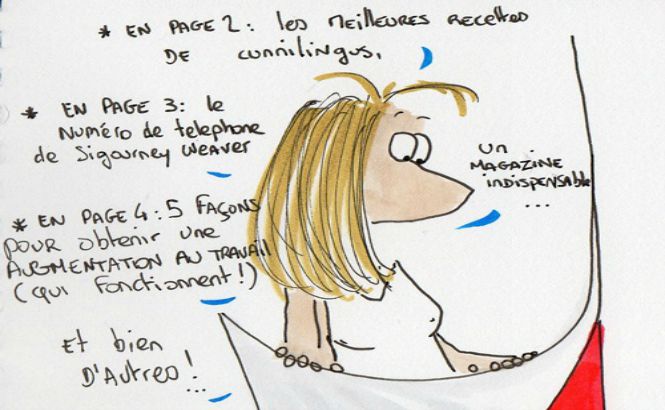 * EN PAGE 2 : les MEILLEURES RECETTES
DE CUNNILINGUS,
* EN PAGE 3 : le
NUMÉRO de telephone
de Sigourney WEAVER
* EN PAGE 4 : 5 FAÇONS
POUR obtenir une
AUGMENTATION AU TRAVAIL
(qui fonctionnent !)
Et bien
D'AUTRES !
...
UN
MAGAZINE
indispensable
...